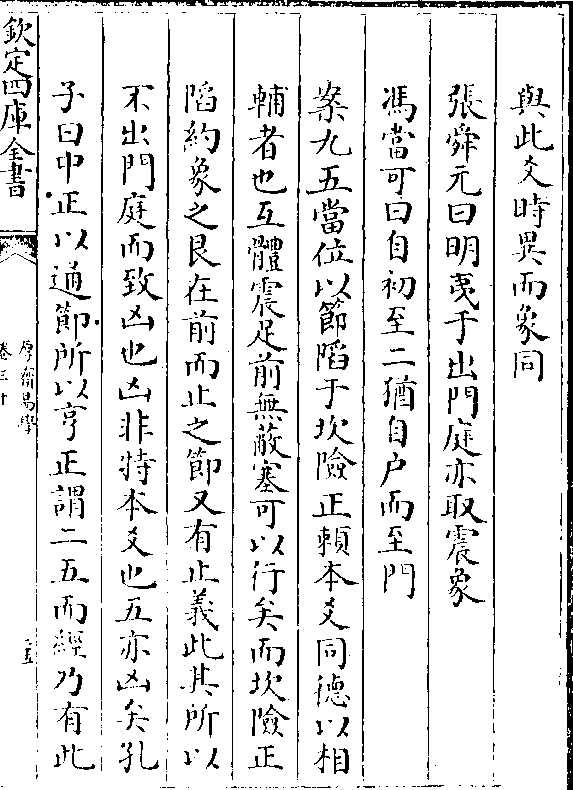 與此爻時異而象同
張舜元曰明夷于出門庭亦取震象
馮當可曰自初至二猶自户而至門
案九五當位以節陷于坎險正賴本爻同德以相
輔者也互體震足前無蔽塞可以行矣而坎險正
陷約象之艮在前而止之節又有止義此其所以
不出門庭而致凶也凶非特本爻也五亦凶矣孔
子曰中正以通節所以亨正謂二五而經乃有此
欽定四庫全書
厚齋易學
卷三十